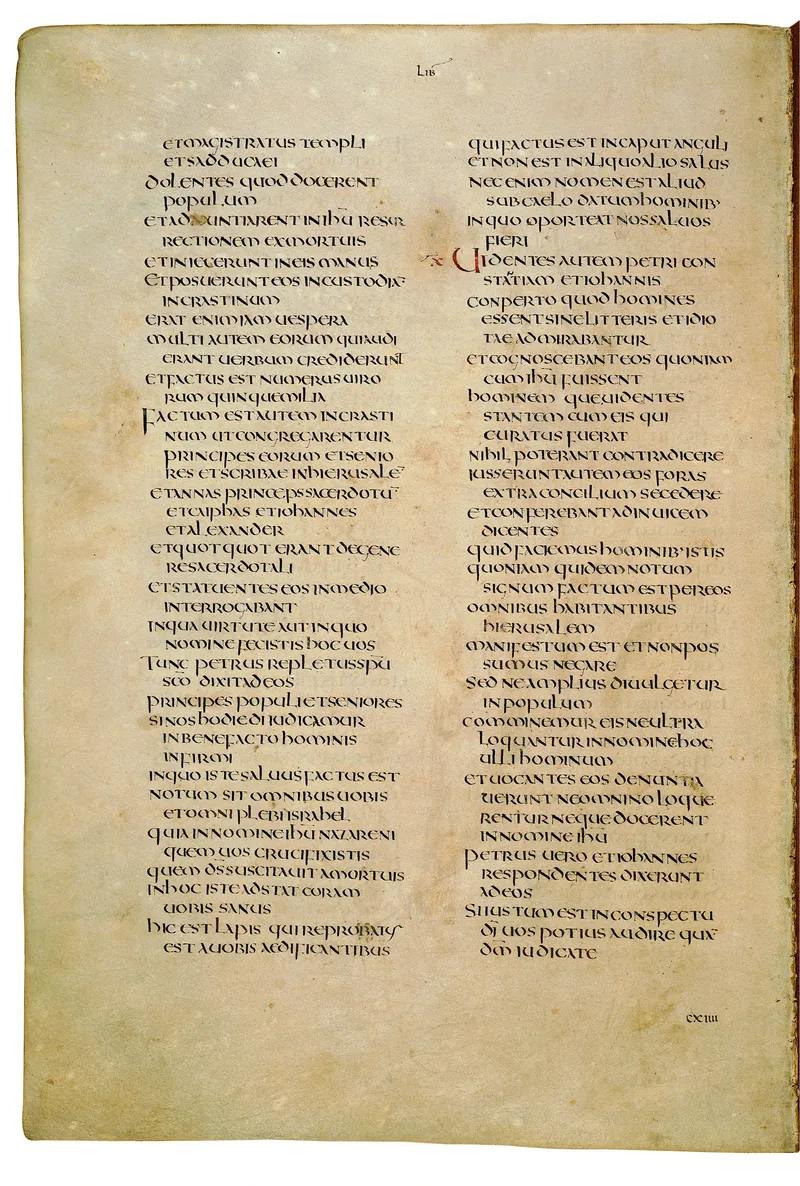 LIB̅
ET MAGISTRATUS TEMPLI
ET SADDUCAEI
DOLENTES QUOD DOCERENT
POPULUM
ET ADNUNTIARENT IN IH̅U RESUR
RECTIONEM EX MORTUIS
ET INIECERUNT IN EIS MANUS
ET POSUERUNT EOS IN CUSTODIA̅
IN CRASTINUM
ERAT ENIM IAM UESPERA
MULTI AUTEM EORUM QUI AUDI
ERANT UERBUM CREDIDERUNT
ET FACTUS EST NUMERUS UIRO
RUM QUINQUE MILIA
FACTUM EST AUTEM IN CRASTI
NUM UT CONGREGARENTUR
PRINCIPES EORUM ET SENIO
RES ET SCRIBAE IN HIERUSALE̅
ET ANNAS PRINCEPS SACERDOTU̅
ET CAIPHAS ET IOHANNES
ET ALEXANDER
ET QUOTQUOT ERANT DE GENE
RE SACERDOTALI
ET STATUENTES EOS IN MEDIO
INTERROGABANT
IN QUA UIRTUTE AUT IN QUO
NOMINE FECISTIS HOC UOS
TUNC PETRUS REPLETUS SPU̅
SCO̅ DIXIT AD EOS
PRINCIPES POPULI ET SENIORES
SI NOS HODIE DIIUDICAMUR
IN BENEFACTO HOMINIS
INFIRMI
IN QUO ISTE SALUUS FACTUS EST
NOTUM SIT OMNIBUS UOBIS
ET OMNI PLEBI ISRAHEL
QUIA IN NOMINE IH̅U NAZARENI
QUEM UOS CRUCIFIXISTIS
QUEM DS̅ SUSCITAUIT A MORTUIS
IN HOC ISTE ADSTAT CORAM
UOBIS SANUS
HIC EST LAPIS QUI REPROBATUS
EST A UOBIS AEDIFICANTIBUS
QUI FACTUS EST IN CAPUT ANGULI
ET NON EST IN ALIQUO ALIO SALUS
NEC ENIM NOMEN EST ALIUD
SUB CAELO DATUM HOMINIB'
IN QUO OPORTEAT NOS SALUOS
FIERI
UIDENTES AUTEM PETRI CON
STANTIAM ET IOHANNIS
CONPERTO QUOD HOMINES
ESSENT SINE LITTERIS ET IDIO
TAE ADMIRABANTUR
ET COGNOSCEBANT EOS QUONIAM
CUM IH̅U FUISSENT
HOMINEM QUE UIDENTES
STANTEM CUM EIS QUI
CURATUS FUERAT
NIHIL POTERANT CONTRADICERE
IUSSERUNT AUTEM EOS FORAS
EXTRA CONCILIUM SECEDERE
ET CONFEREBANT AD INUICEM
DICENTES
QUID FACIEMUS HOMINIB' ISTIS
QUONIAM QUIDEM NOTUM
SIGNUM FACTUM EST PER EOS
OMNIBUS HABITANTIBUS
HIERUSALEM
MANIFESTUM EST ET NON POS
SUMUS NEGARE
SED NE AMPLIUS DIUULGETUR
IN POPULUM
COMMINEMUR EIS NE ULTRA
LOQUANTUR IN NOMINE HOC
ULLI HOMINUM
ET UOCANTES EOS DENUNTIA
UERUNT NE OMNINO LOQUE
RENTUR NEQUE DOCERENT
IN NOMINE IH̅U
PETRUS UERO ET IOHANNES
RESPONDENTES DIXERUNT
AD EOS
SI IUSTUM EST IN CONSPECTU
DI̅ UOS POTIUS AUDIRE QUA̅
DM̅ IUDICATE
CXIIII